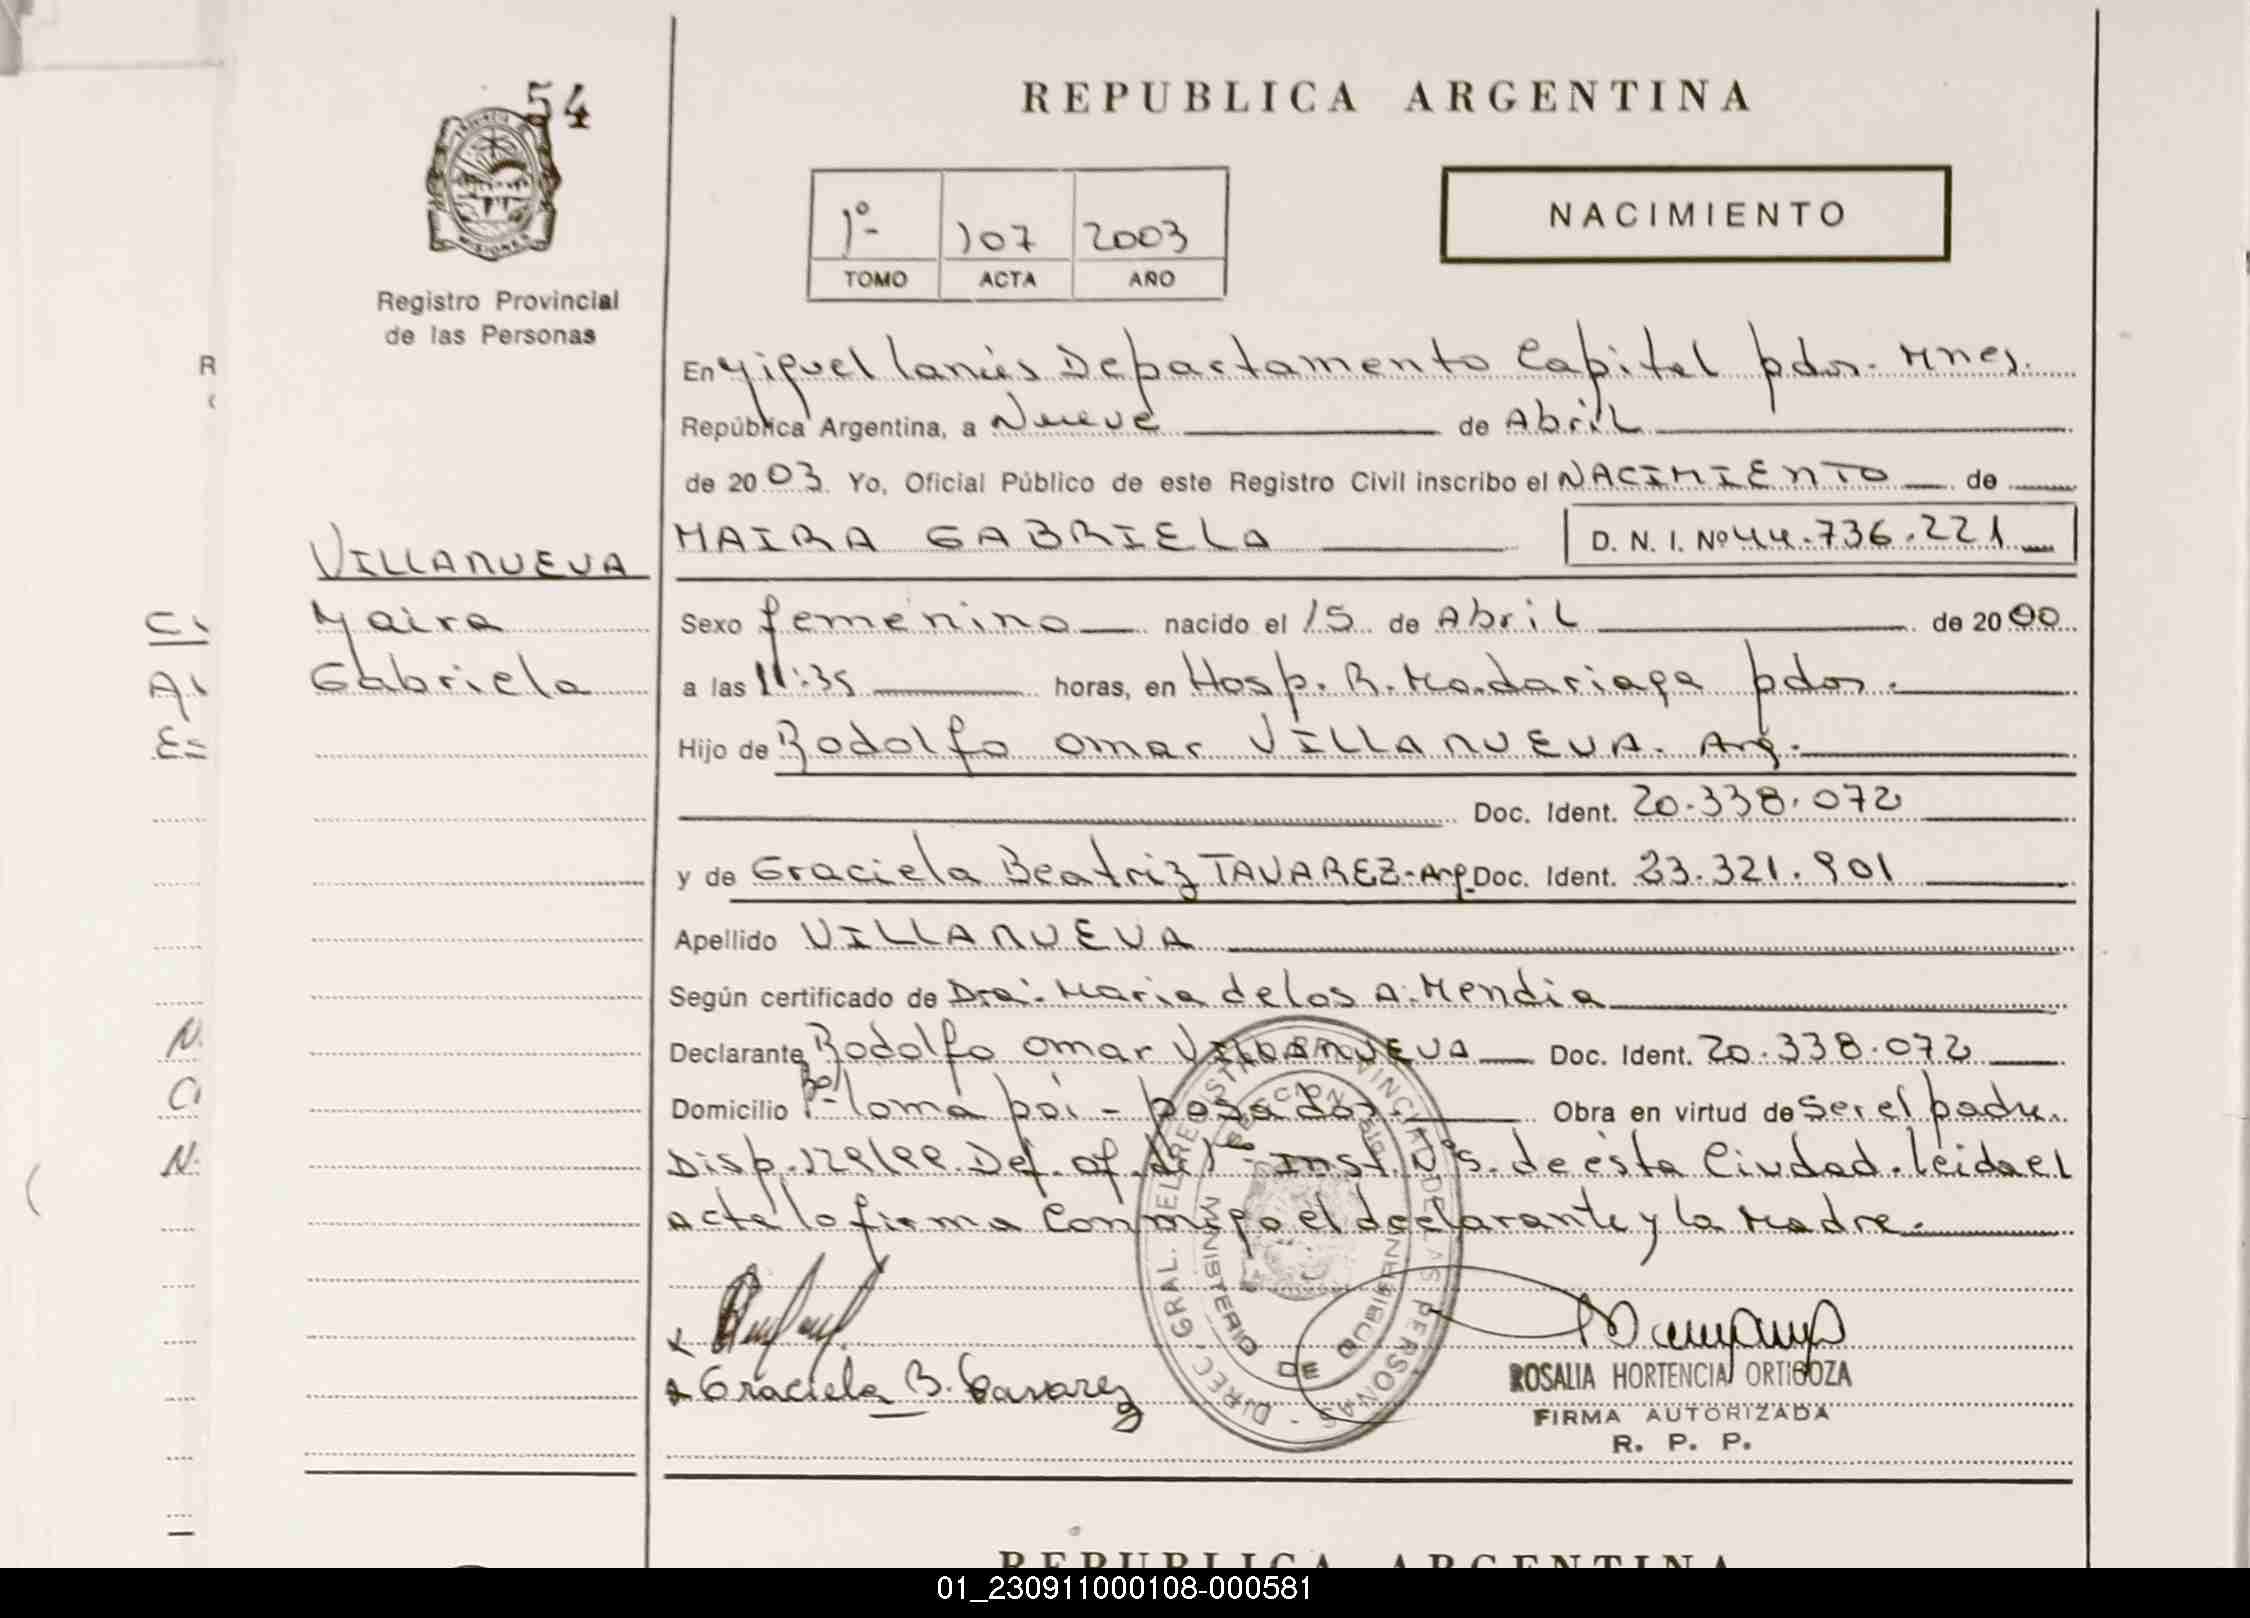 54
PROVINCIA DE
MISIONES
Registro Provincial
de las Personas
VILLANUEVA
Maira
Gabriela
REPUBLICA ARGENTINA
1º- 107 2003
TOMO ACTA AÑO
NACIMIENTO
En Miguel Lanús Departamento Capital pdas. Mnes.
República Argentina, a Nueve de Abril
de 2003 Yo, Oficial Público de este Registro Civil inscribo el NACIMIENTO de
MAIRA GABRIELA D. N. I. Nº 44.736.221
Sexo femenino nacido el 15 de Abril de 2000
a las 11:35 horas, en Hosp. R. Madariaga pdas.
Hijo de Rodolfo Omar VILLANUEVA. Arg.
Doc. Ident. 20.338.072
y de Graciela Beatriz TAVAREZ-Arg. Doc. Ident. 23.321.901
Apellido VILLANUEVA
Según certificado de Dra. Maria de los A. Mendia
Declarante Rodolfo Omar VILLANUEVA Doc. Ident. 20.338.072
Domicilio Bº loma poi - posadas. Obra en virtud de ser el padre.
Disp. 129/99. Def. of. de 1ª Inst. Nº5. de ésta Ciudad. Leida el
acta lo firma conmigo el declarante y la Madre.
x
x Graciela B. Tavarez
DIREC. GRAL. DEL REGISTRO PROVINCIAL DE LAS PERSONAS
MINISTERIO DE GOBIERNO
ROSALIA HORTENCIA ORTIGOZA
FIRMA AUTORIZADA
R. P. P.
REPUBLICA ARGENTINA
01_230911000108-000581